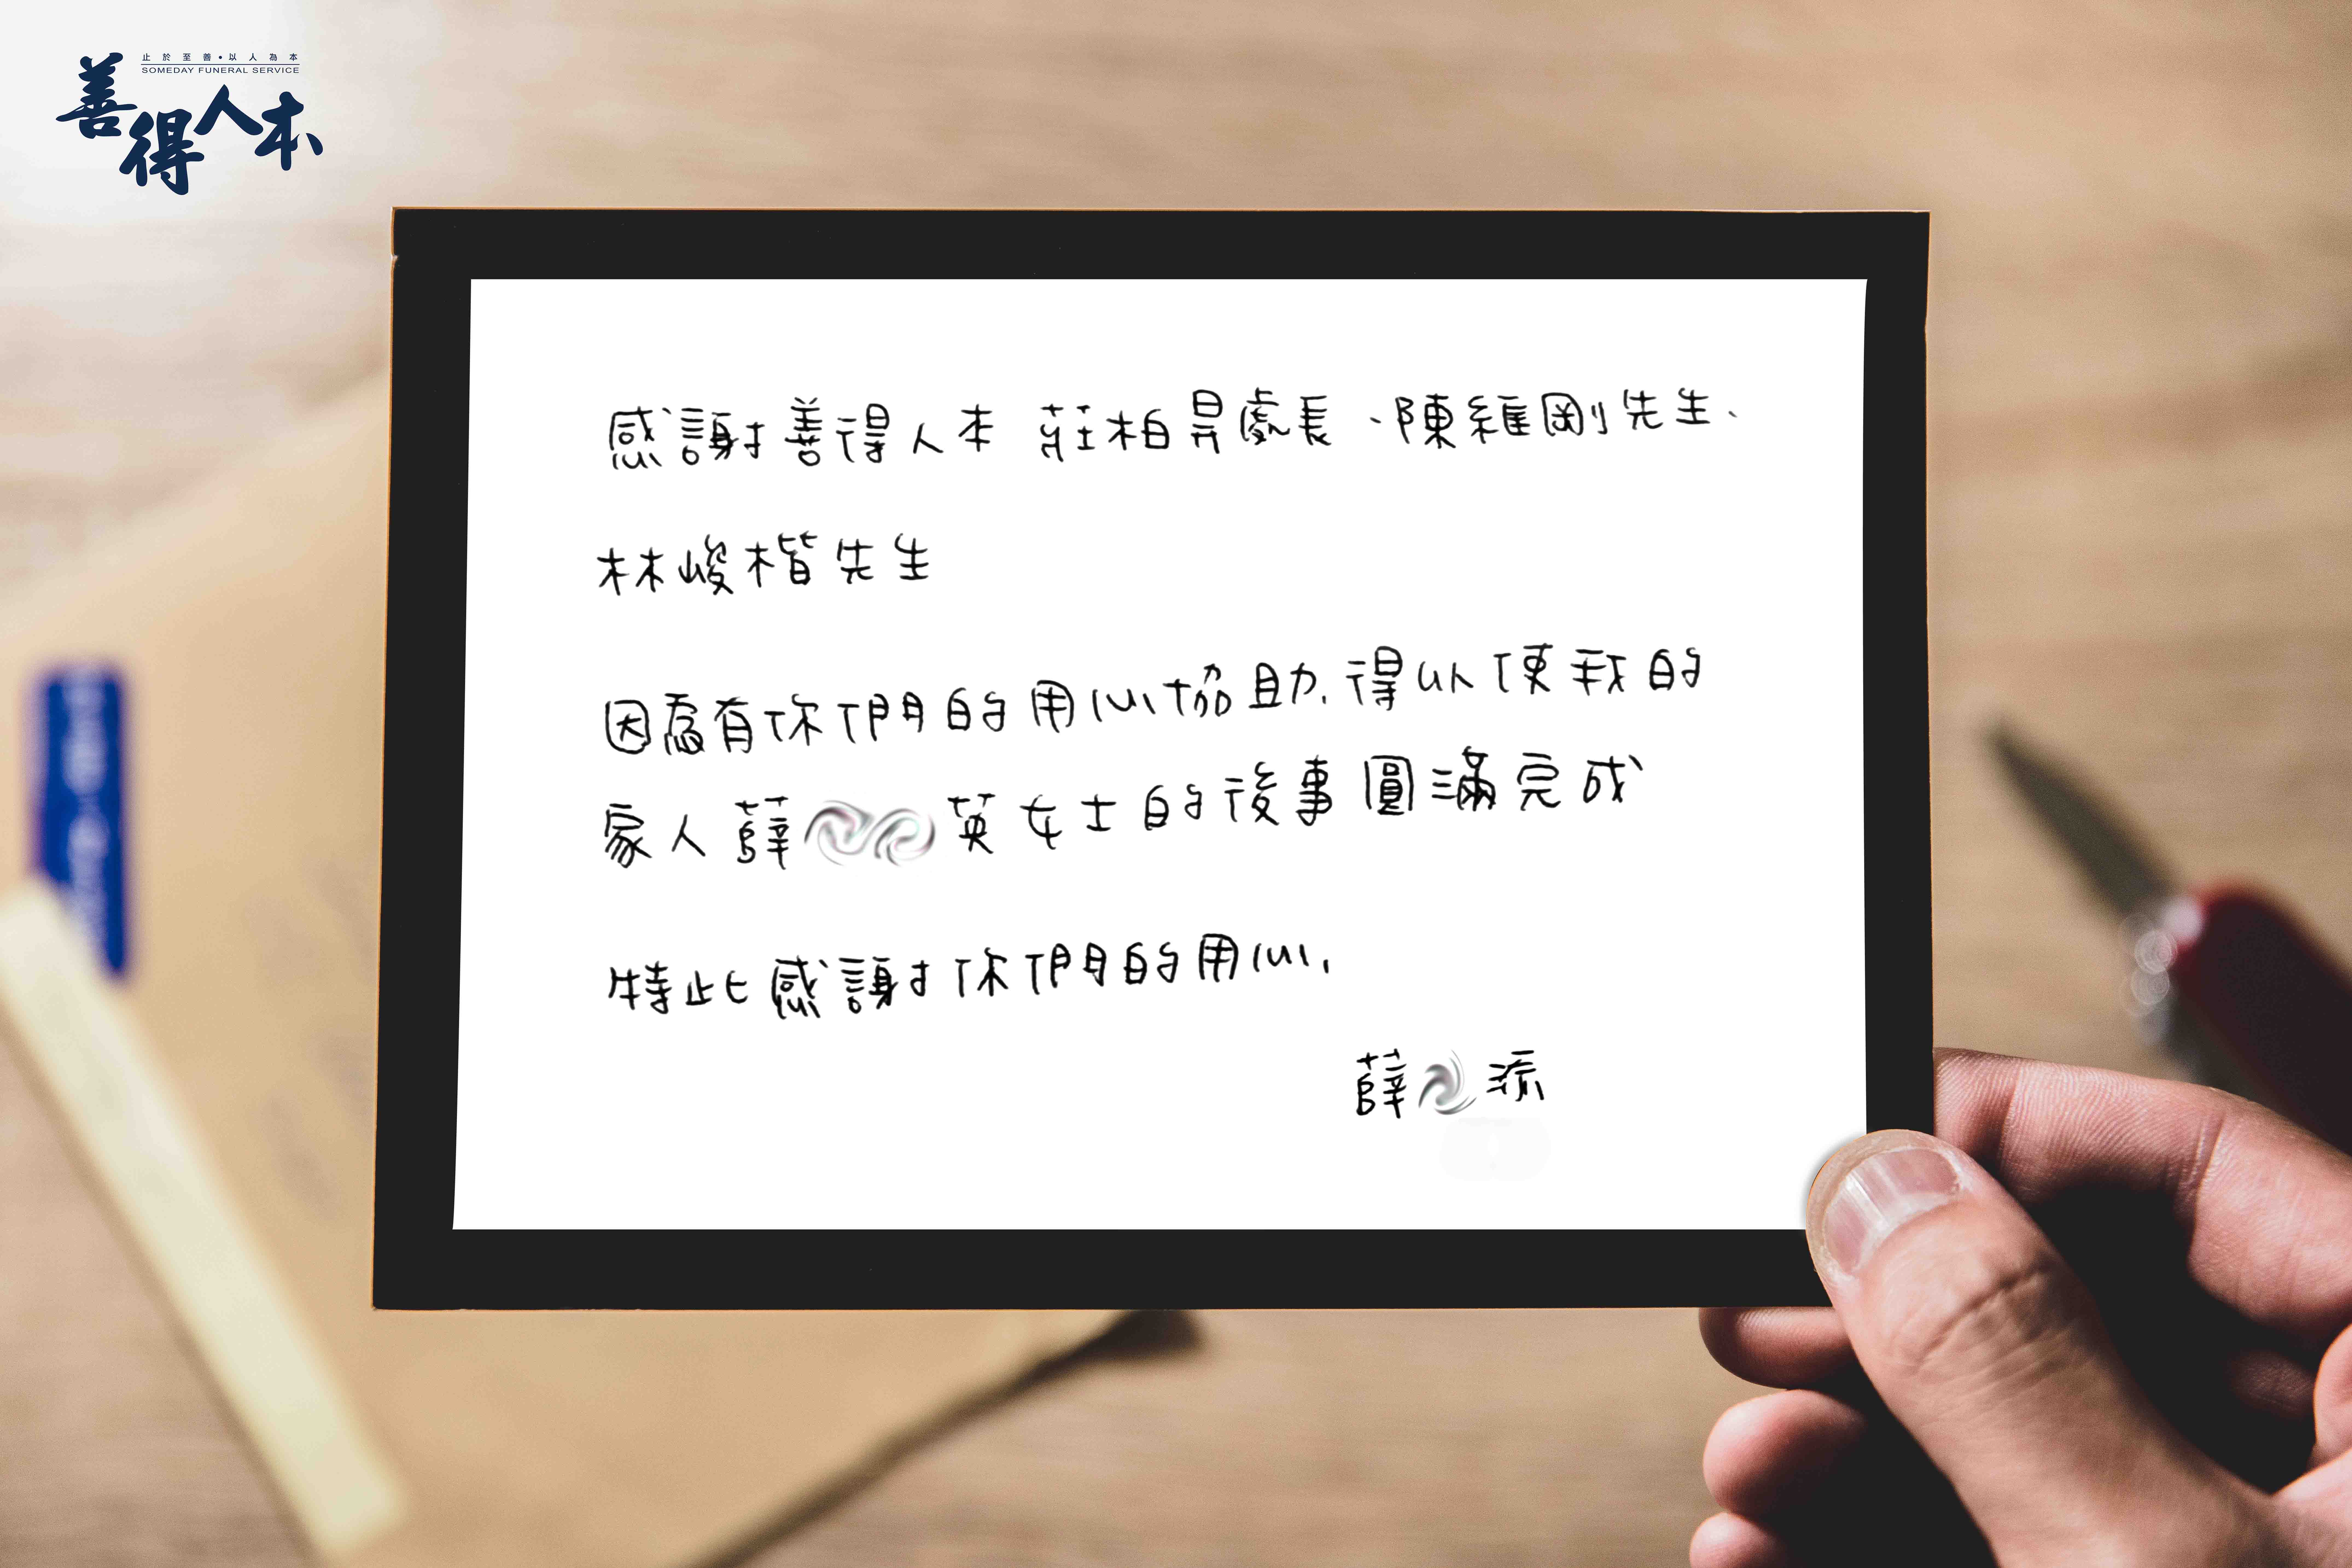 止於至善•以人為本
SOMEDAY FUNERAL SERVICE
善得人本
感謝善得人本 莊柏昇處長、陳維剛先生、
林峻楷先生
因為有你們的用心協助,得以使我的
家人薛英女士的後事圓滿完成
特此感謝你們的用心,
薛添